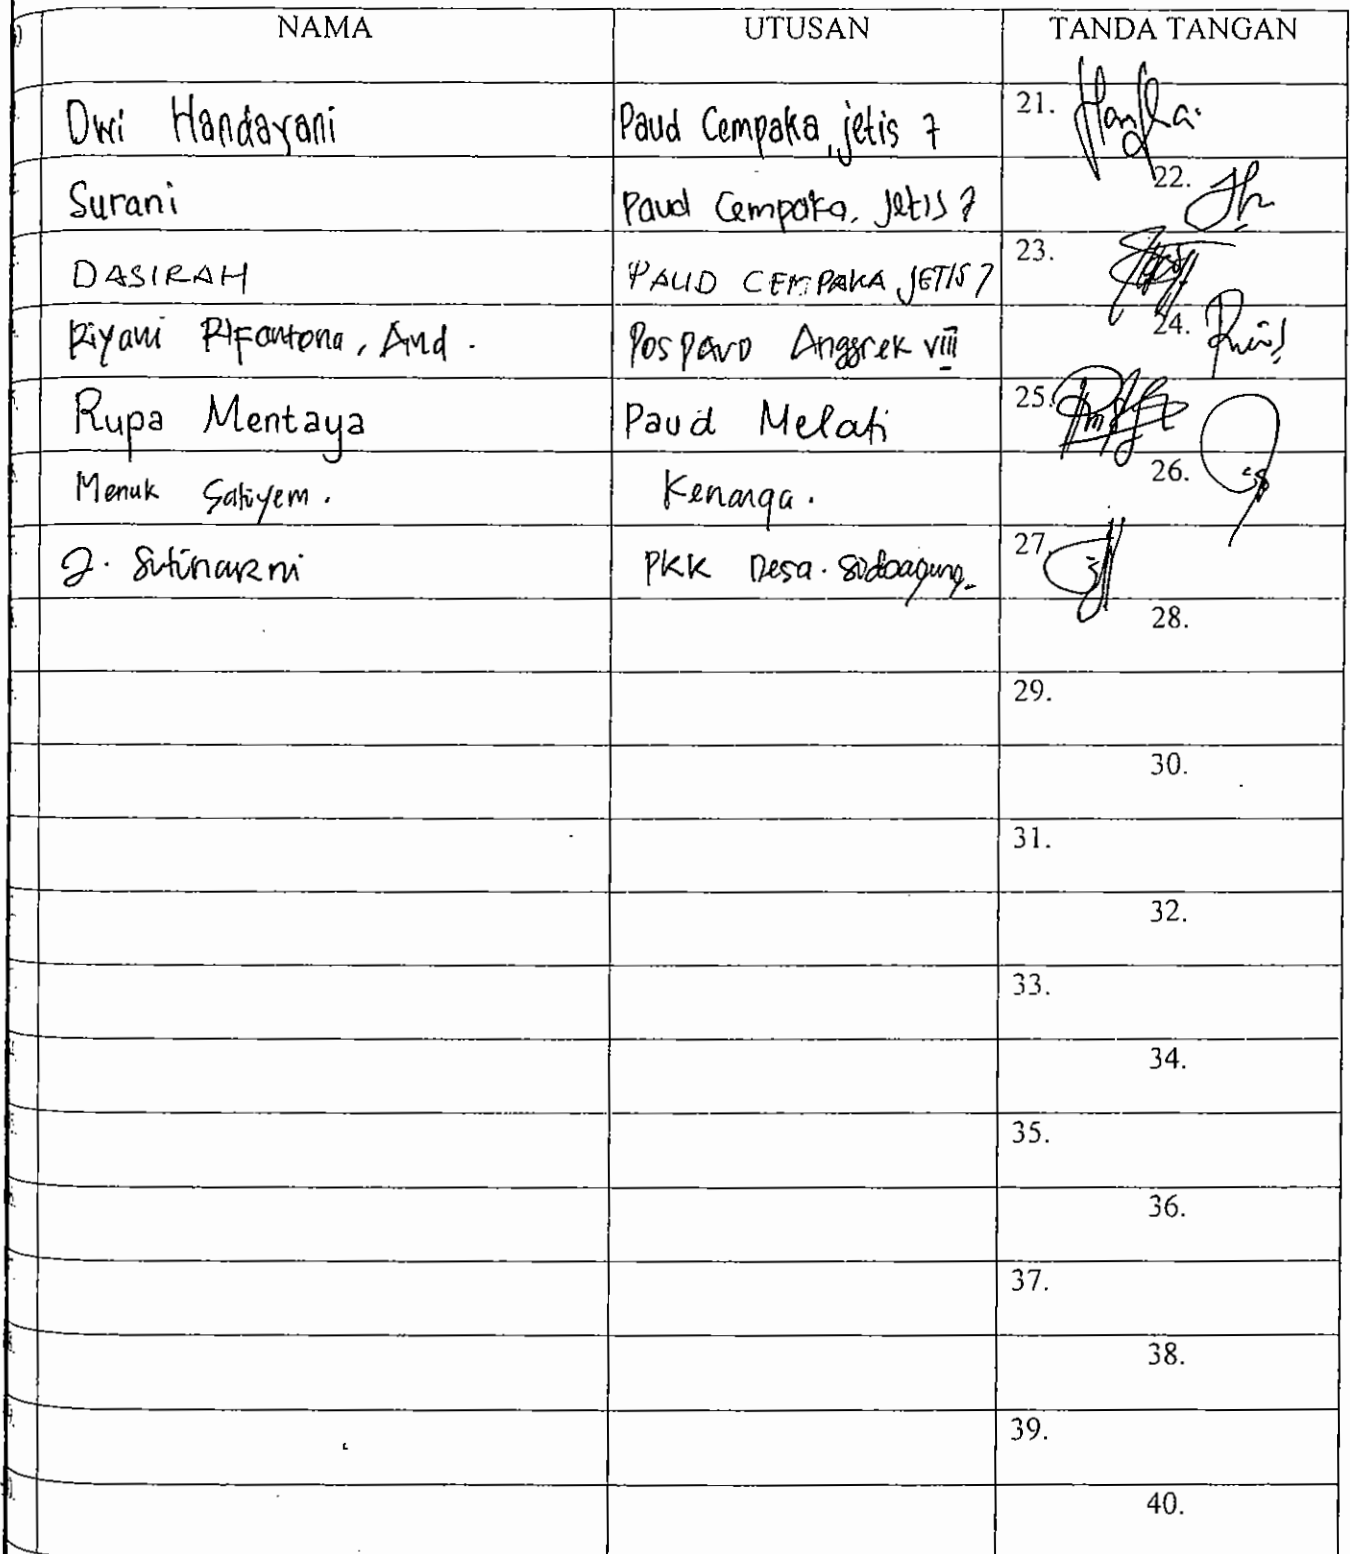 NAMA UTUSAN TANDA TANGAN
Dwi Handayani Paud Cempaka, jetis 7 21.
Surani Paud Cempaka, Jetis 7 22.
DASIRAH PAUD CEMPAKA JETIS 7 23.
Riyani, Amd. Pos PAUD Anggrek VIII 24.
Rupa Mentaya Paud Melati 25.
Menuk Satiyem. Kenanga. 26.
J. Sutinarni PKK Desa. Sidoagung 27.
28.
29.
30.
31.
32.
33.
34.
35.
36.
37.
38.
39.
40.